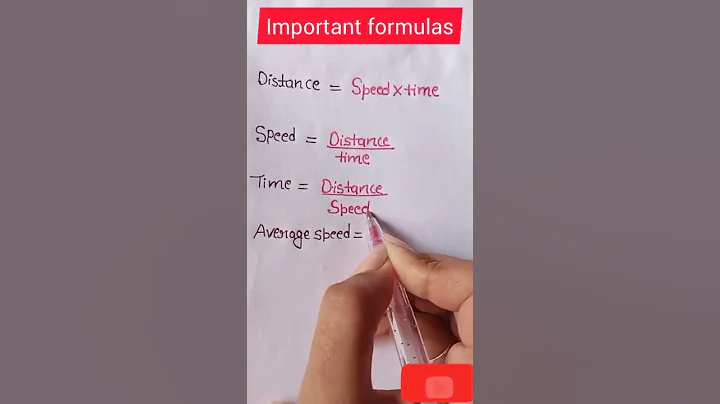 Important formulas
Distance = Speed × time
Speed = Distance
time
Time = Distance
Speed
Average speed =